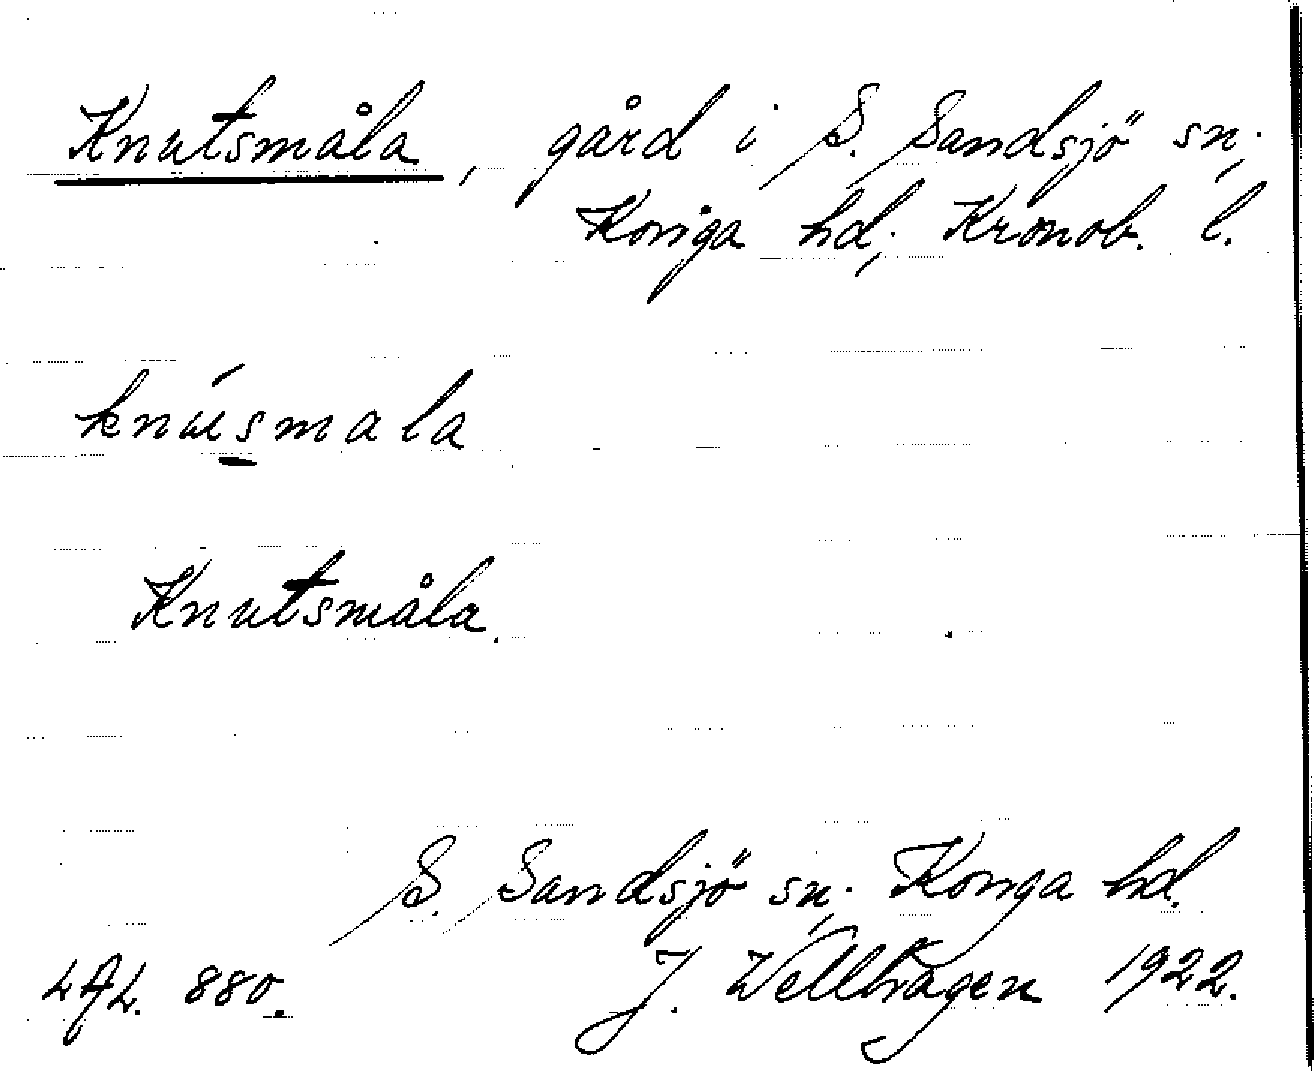 Knutsmåla, gård i S. Sandsjö sn;
Konga hd; Kronob. l.
knúsmala
Knutsmåla.
S. Sandsjö sn; Konga hd.
880. J. Wellhagen 1922.